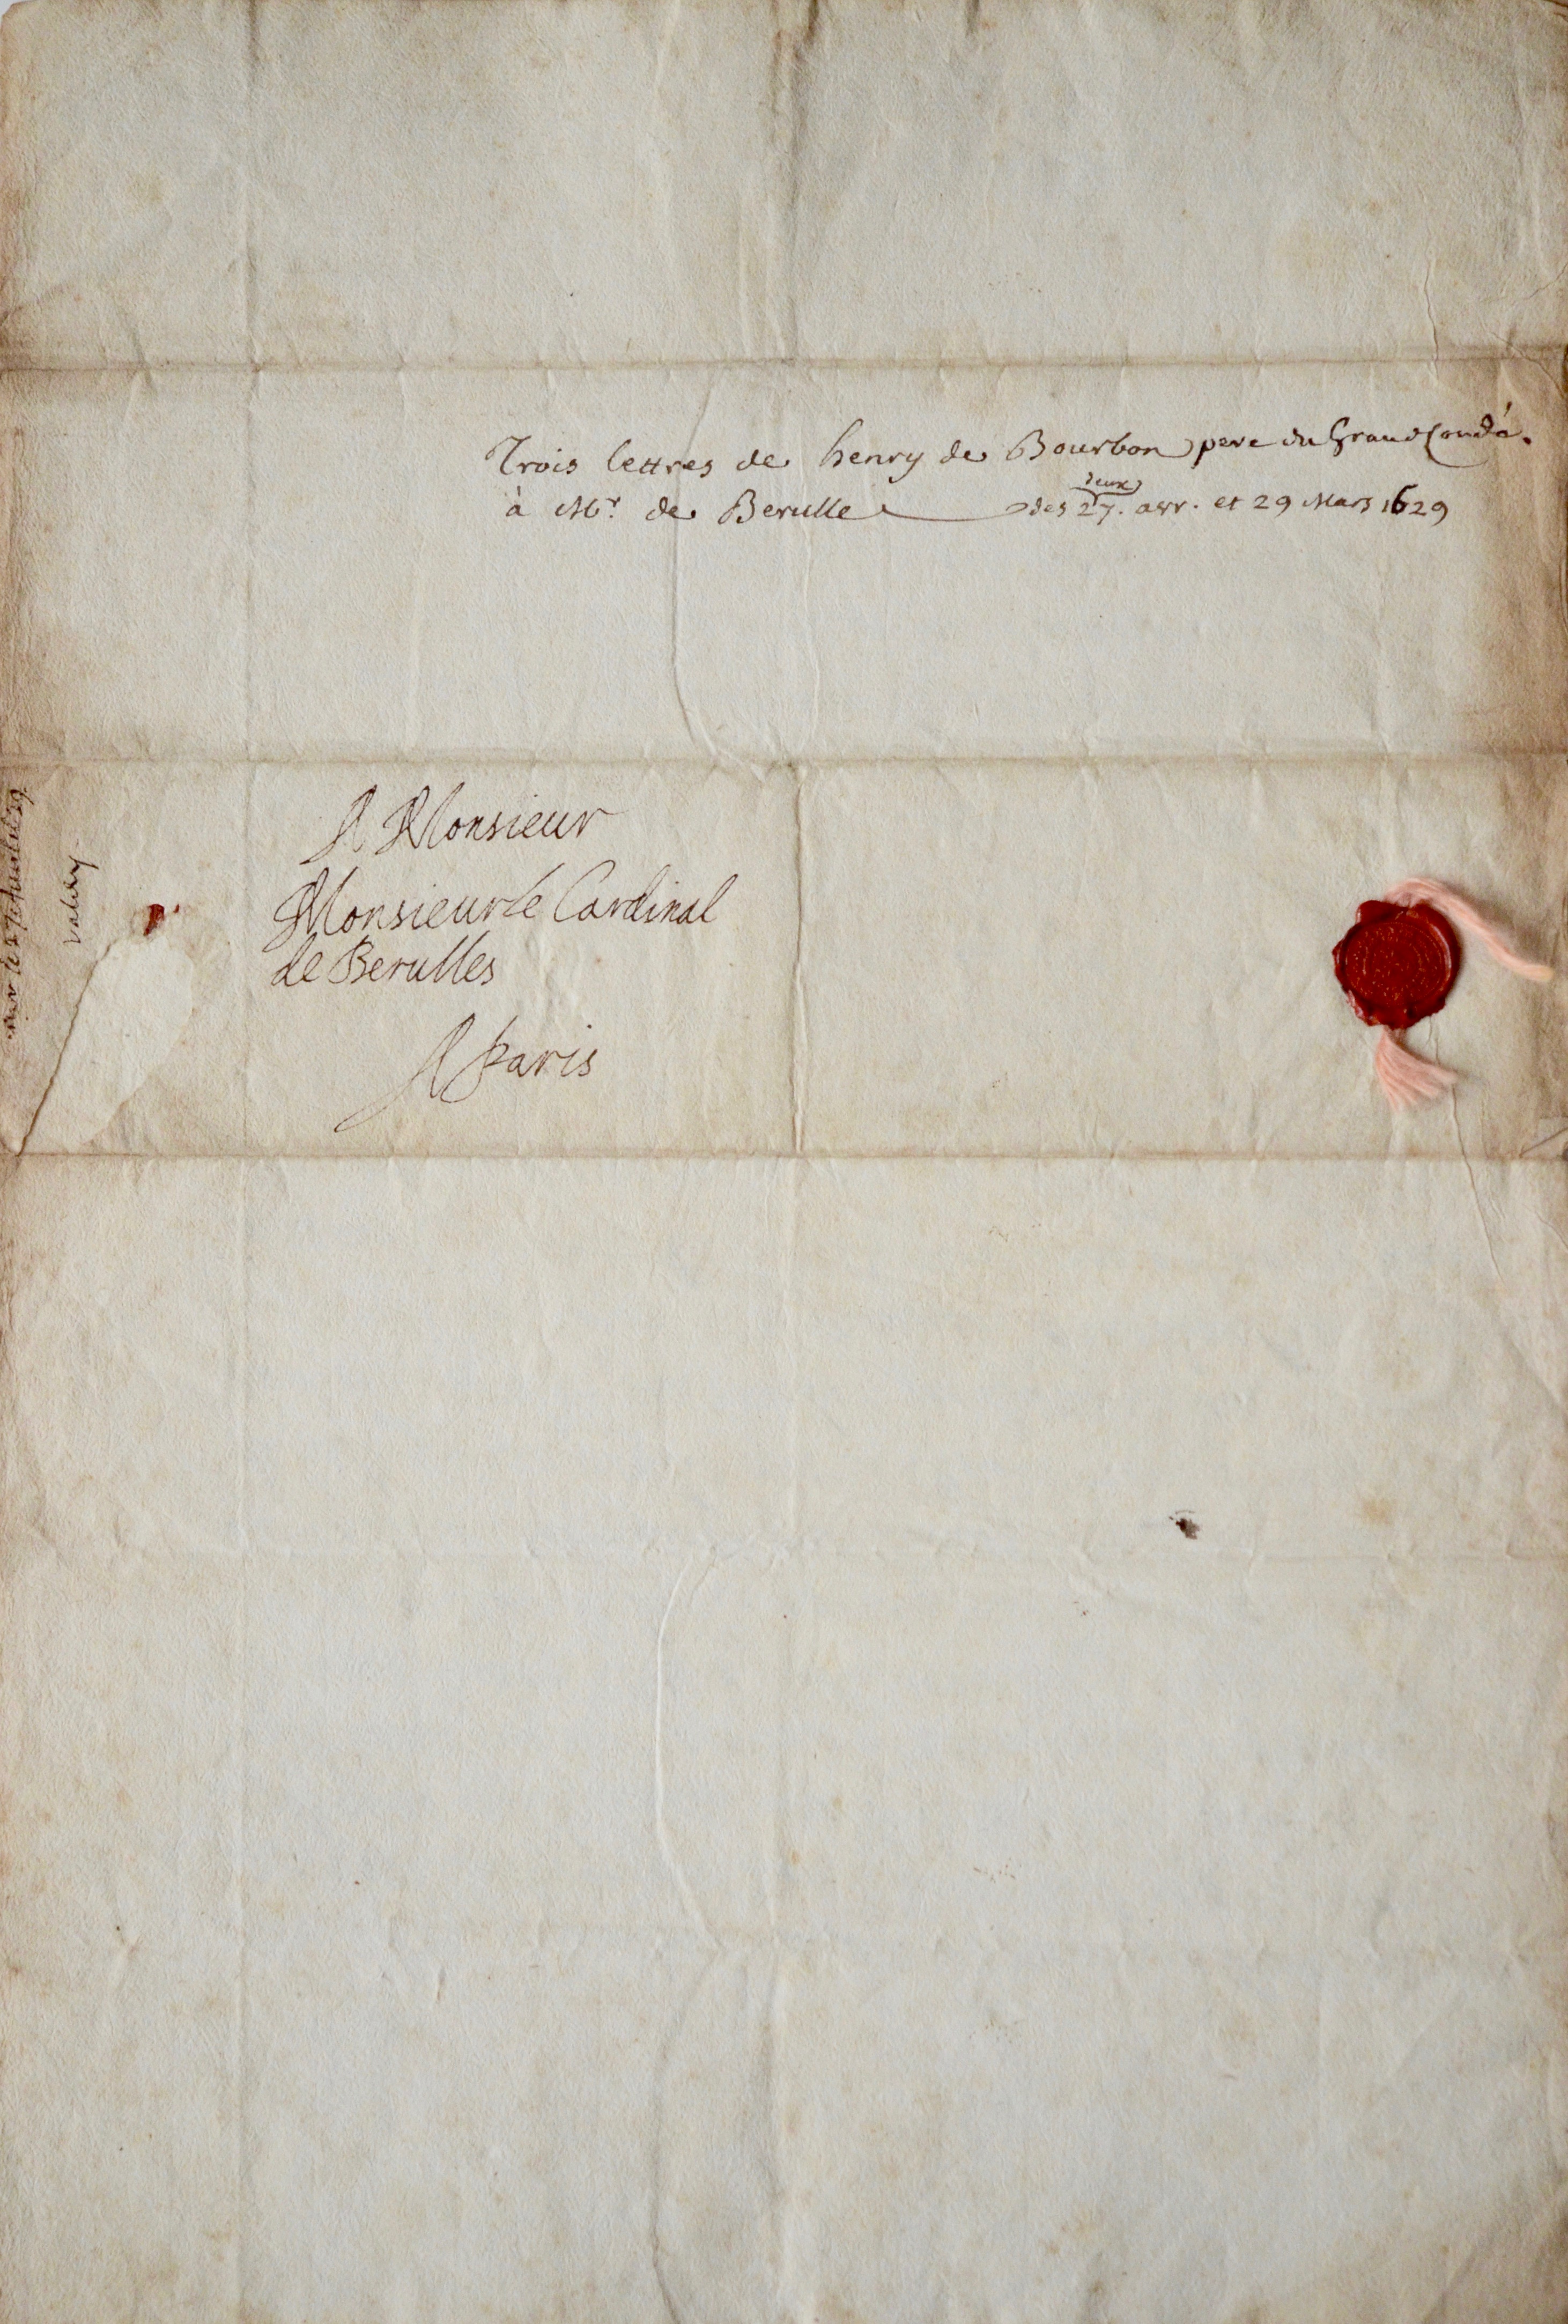 Trois lettres de henry de Bourbon pere du Grand Condé.
deux
à Mr. de Berulle des 27. avr. et 29 Mars 1629
A Monsieur
Monsieur le Cardinal
de Berulles
A Paris
valery